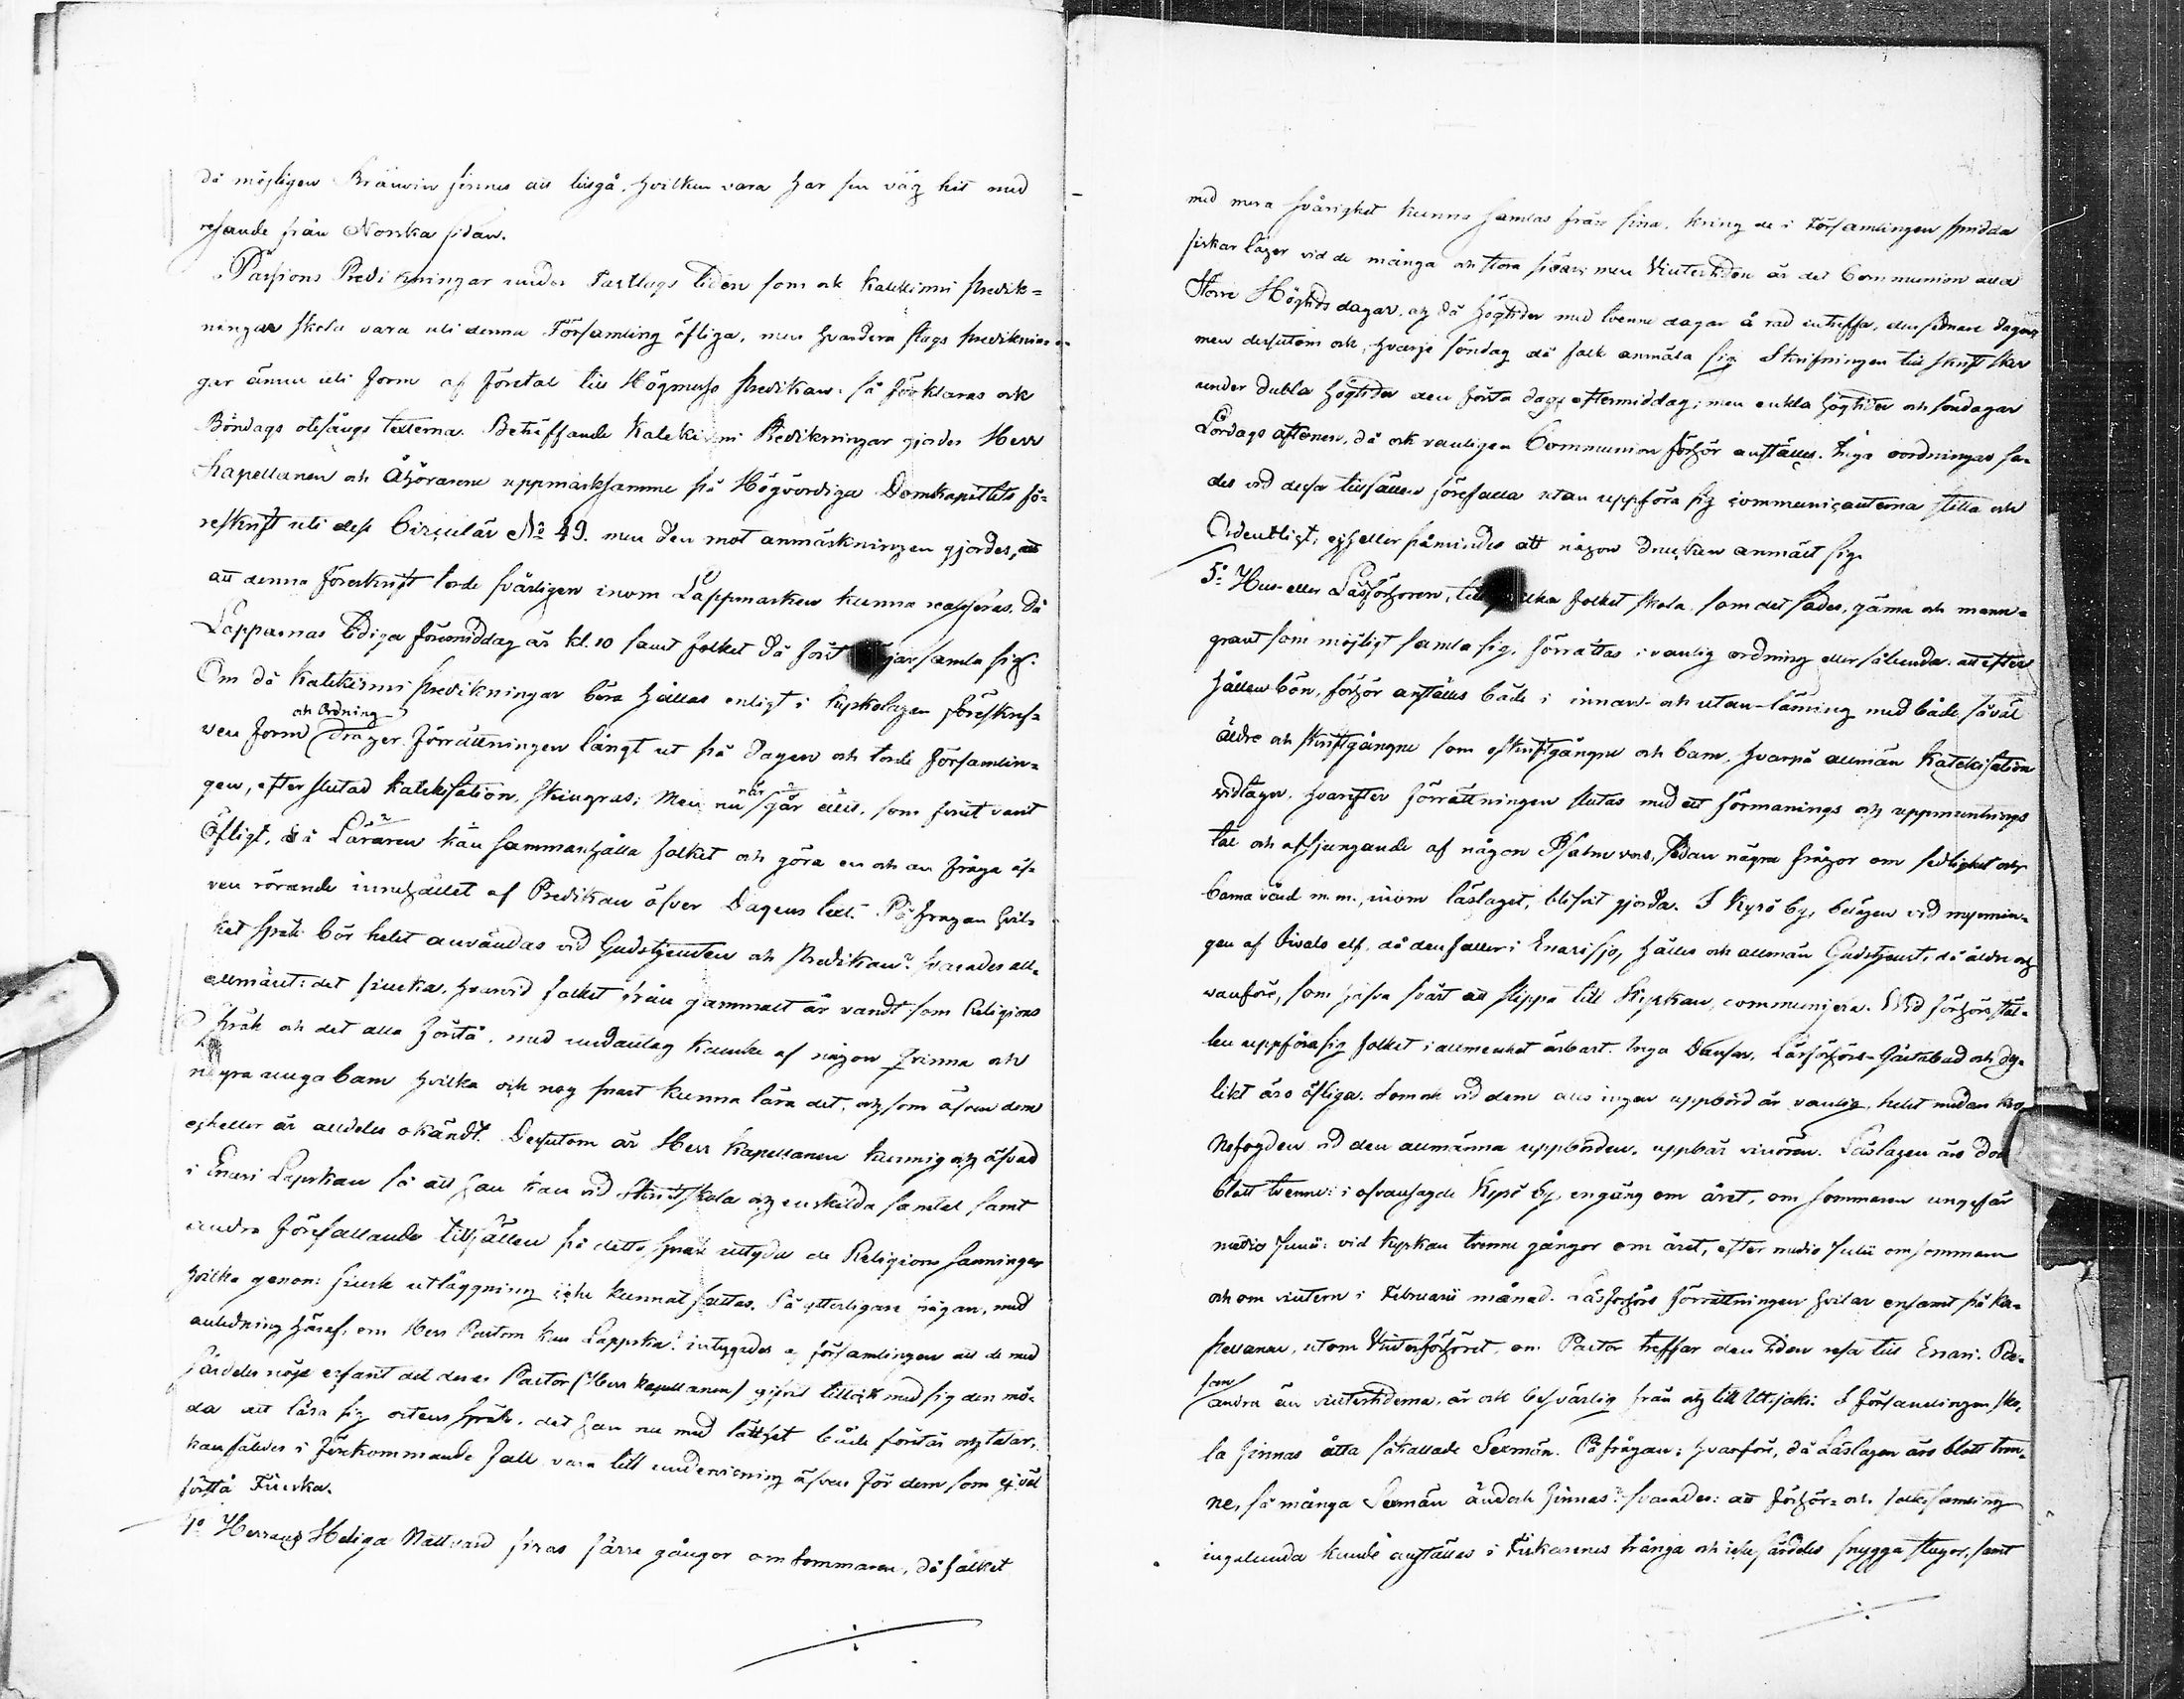 då möjligen Bränvin finnes att tillgå, hvilken vara har sin väg hit med
resande från Norska sidan.
Passions Predikningar under Fastlags tiden som ock Katekismi predik-
ningar skola vara uti denna Församling öfliga, men hvardera slags prediknin-
gar ännu uti form af Företal till Högmesso predikan. så förklaras ock
Böndags otesångs texterna. Beträffande Katekismi Predikningar gjordes Herr
Kapellanen och Åhörarene uppmärksamme på Högvördiga Domkapitlets fö-
reskrift uti dess Circulär No 49. men den mot anmärkningen gjordes, att
att denna föreskrift torde svårligen inom Lappmarken kunna realiseras, då
Lapparnas tidiga förmiddag är kl. 10 samt folket då först börjar samla sig.
Om då Katekismi predikningar böra hållas enligt i Kyrkolagen föreskrif-
och Ordning
ven form drager förrättningen långt ut på dagen och torde församlin-
gen, efter slutad katekisation, skingras; Men nu när går allt, som förut varit
öfligt, så Läraren kan sammanhålla folket och göra en och an fråga äf-
ven rörande innehållet af Predikan öfver Dagens text. På frågan hvil-
ket språk bör helst användas vid Gudstjensten och predikan? svarades all-
allmänt: det finska, hvarvid folket ifrån gammalt är vandt som Religions
språk och det alla förstå, med undantag kanske af någon qvinna och
några unga barn hvilka ock nog snart kunna lära det, och som äfven dem
ejheller är alldeles okändt. Dessutom är Herr Kapellanen kunnig och öfvad
i Enari Lapskan så att han kan vid Skriftskola och enskilda samtal samt
andra förefallande tillfällen på detta språk uttyda de Religions sanningar
hvilka genom finsk utläggning icke kunnat fattas. På ytterligare frågan, med
anledning häraf, om Herr Pastorn kan Lappska? intygades af församlingen att de med
särdeles nöje erfarit det deras Pastor (Herr Kapellanen) gifvit tillika med sig den mö-
da att lära sig ortens språk, det han nu med lätthet både förstår och talar,
kan således i förekommande fall vara till undervisning äfven för dem som ej väl
förstå Finska.
4o Herrans Heliga Nattvard firas färre gångor om Sommaren, då folket
med mera svårighet kunna samlas från sina, kring de i Församlingen spridda
fiskar läger vid de många och stora sjöar; men Vintertiden är det Communion alla
större Högtids dagar, och då högtider med tvenne dagar å rad inträffa, den sednare dagen,
men dessutom ock hvarje söndag då folk anmäla sig. Skrifningen till skrift sker
under dubla högtider den första dags eftermiddag; men enkla högtider och söndagar
Lördags aftonen, då ock vanligen Communion förhör anställes. Inga oordningar sa-
des vid dessa tillfällen förefalla utan uppföra sig communicanterna stilla och
Ordentligt, ejheller påmindes att någon drucken anmält sig.
5o Hus- eller Läsförhören, till hvilka folket skola, som det sades, gärna och mann-
grant som möjligt samla sig, förrättas i vanlig ordning eller sålunda: att efter
hållen bön, förhör anställes både i innan- och utan-läsning med både såväl
äldre och skriftgångne som oskriftgångne och barn, hvarpå allmän Katekisation
vidtager. hvarefter förrättningen slutas med ett förmanings och uppmuntrings
tal och afsjungande af någon Psalm vers, sedan några frågor om sedlighet och
barna vård m.m., inom läslaget, blifvit gjorda. I Kyrö by, belägen vid mynnin-
gen af Ivalo elf, då den faller i Enari sjö, hålles ock allmän Gudstjenst, då äldre och
vanföre, som hafva svårt att slippa till Kyrkan, communicera. Vid förhörs stäl-
len uppföra sig folket i allmenhet ärbart. Inga Danser, Läsförhörs-Gästabud och dy-
likt äro öfliga. Som ock vid dem alls ingen uppbörd är vanlig, helst medan kro-
nofogden vid den allmänna uppbörden, uppbär vinören. Läslagen äro dock
blott tvenne: i ofvansagde Kyrö by, en gång om året, om sommaren ungefär
medio Junii: vid Kyrkan tvenne gångor om året, efter medio Julii om sommaren
och om vintern i Februarii månad. Läsförhörs förrättningen hvilar ensamt på Ka-
pellanen, utom Vinterförhöret, om Pastor träffar den tiden resa till Enari. Re-
san
andra än vintertiderna, är ock besvärlig från och till Utsjoki. I församlingen sko-
la finnas åtta såkallade Sexmän. På frågan: hvarföre, då Läslagen äro blott tven-
ne, så många Sexmän ändock finnas? svarades: att förhör- och folksamling
ingalunda kunde anställas i Fiskarenes trånga och icke särdeles snygga stugor, samt